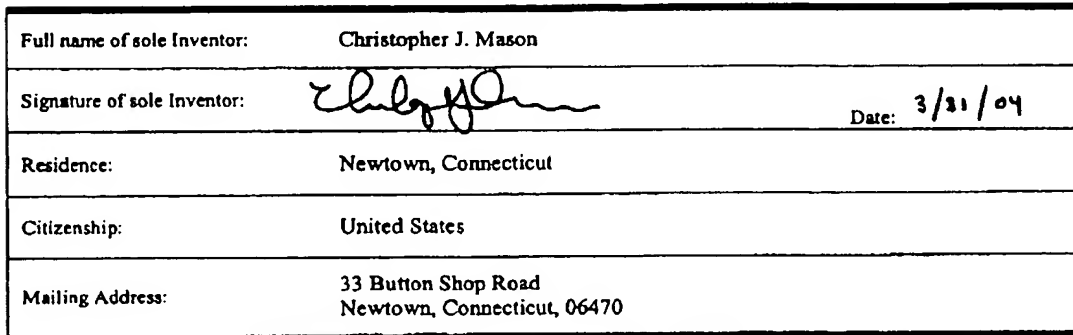 Full name of sole Inventor: Christopher J. Mason
Signature of sole Inventor: Date: 3/31/04
Residence: Newtown, Connecticut
Citizenship: United States
Mailing Address: 33 Button Shop Road
Newtown, Connecticut, 06470